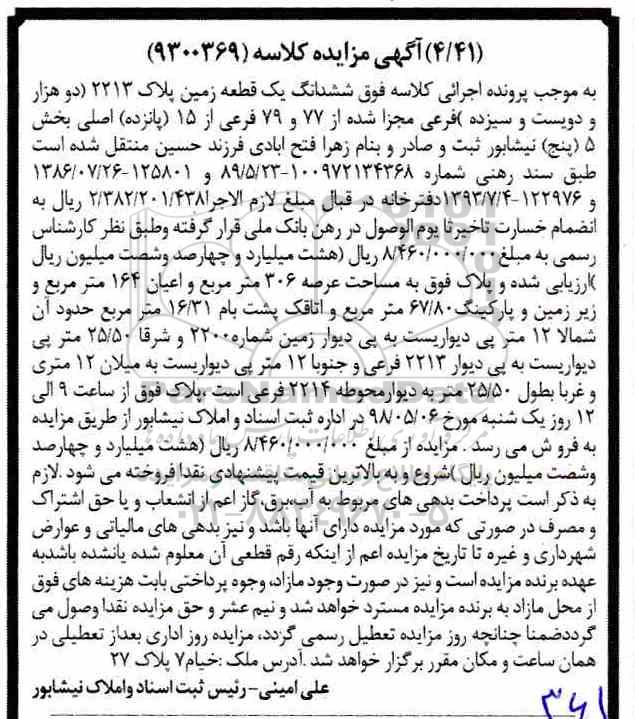 (۴/۴۱) آگهی مزایده کلاسه (۹۳۰۰۳۶۹)
به موجب پرونده اجرائی کلاسه فوق ششدانگ یک قطعه زمین پلاک ۲۲۱۳ (دو هزار
و دویست و سیزده )فرعی مجزا شده از ۷۷ و ۷۹ فرعی از ۱۵ (پانزده) اصلی بخش
۵ (پنج) نیشابور ثبت و صادر و بنام زهرا فتح ابادی فرزند حسین منتقل شده است
طبق سند رهنی شماره ۱۰۰۹۷۲۱۳۴۳۶۸-۸۹/۵/۲۳ و ۱۲۵۸۰۱-۱۳۸۶/۰۷/۲۶
و ۱۲۲۹۷۶-۱۳۹۳/۷/۴دفترخانه در قبال مبلغ لازم الاجرا۲/۳۸۲/۲۰۱/۴۳۸ ریال به
انضمام خسارت تاخیر تا یوم الوصول در رهن بانک ملی قرار گرفته وطبق نظر کارشناس
رسمی به مبلغ۸/۴۶۰/۰۰۰/۰۰۰ ریال (هشت میلیارد و چهارصد وشصت میلیون ریال
)ارزیابی شده و پلاک فوق به مساحت عرصه ۳۰۶ متر مربع و اعیان ۱۶۴ متر مربع و
زیر زمین و پارکینک۶۷/۸۰ متر مربع و اتاقک پشت بام ۱۶/۳۱ متر مربع حدود آن
شمالا ۱۲ متر پی دیواریست به پی دیوار زمین شماره۲۲۰۰ و شرقا ۲۵/۵۰ متر پی
دیواریست به پی دیوار ۲۲۱۳ فرعی و جنوبا ۱۲ متر پی دیواریست به میلان ۱۲ متری
و غربا بطول ۲۵/۵۰ متر به دیوارمحوطه ۲۲۱۴ فرعی است .پلاک فوق از ساعت ۹ الی
۱۲ روز یک شنبه مورخ ۹۸/۰۵/۰۶ در اداره ثبت اسناد و املاک نیشابور از طریق مزایده
به فرو ش می رسد . مزایده از مبلغ ۸/۴۶۰/۰۰۰/۰۰۰ ریال (هشت میلیارد و چهارصد
وشصت میلیون ریال )شروع و به بالاترین قیمت پیشنهادی نقدا فروخته می شود .لازم
به ذکر است پرداخت بدهی های مربوط به آب،برق،گاز اعم از انشعاب و یا حق اشتراک
و مصرف در صورتی که مورد مزایده دارای آنها باشد و نیز بدهی های مالیاتی و عوارض
شهرداری و غیره تا تاریخ مزایده اعم از اینکه رقم قطعی آن معلوم شده یانشده باشدبه
عهده برنده مزایده است و نیز در صورت وجود مازاد، وجوه پرداختی بابت هزینه های فوق
از محل مازاد به برنده مزایده مسترد خواهد شد و نیم عشر و حق مزایده نقدا وصول می
گرددضمنا چنانچه روز مزایده تعطیل رسمی گردد، مزایده روز اداری بعداز تعطیلی در
همان ساعت و مکان مقرر برگزار خواهد شد .آدرس ملک :خیام۷ پلاک ۲۷
علی امینی-رئیس ثبت اسناد واملاک نیشابور
۳۶۱